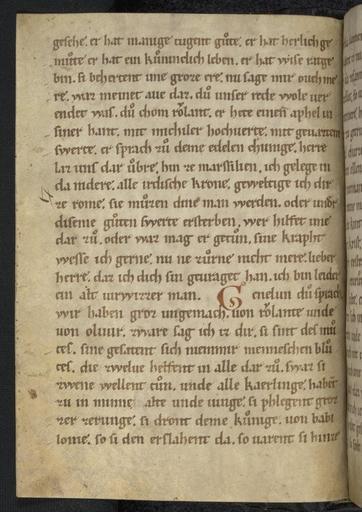 geſche. er hat manige tugent gůte. er hat herlich ge
můte er hat ein kůninclich leben. er hat wiſe ratge
bin. ſi behertent ime groze ere. nu ſage mir ouch me
re. war meinet aue dar. dů unſer rede wole uer
endet was. dů chom rǒlant. er hete einen aphel in
ſiner hant. mit michiler hochuerte. mit geuazten
ſwerte. er ſprach zů deme edelen chunige. herre
laz uns dar ůbre. hin ze marſſilien. ich gelege in
da nidere. alle irdiſche krone. geweltige ich dir
ze rome. ſie můzen dine man werden. oder under
diſeme gůten ſwerte erſterben. wer hilfet ime
dar zů. oder waz mag er getůn. ſine krapht
weſſe ich gerne. nu ne zůrne nicht mere. lieber
herre. daz ich dich ſin geuraget han. ich bin leider
ein alt man. Genelun dů ſprach
wir haben groz ungemach. uon rǒlante unde
uon oliuir. zware ſag ich iz dir. ſi ſint des mů
tes. ſine geſatent ſich niemmir menneſchen blů
tes. die zwelue helfent in alle dar zů. ſwaz ſi
zwene wellent tůn. unde alle kaerlinge. habent
zu in minne alte unde iunge. ſi phlegent groz
zer zerunge. ſi dront deme kůnige. uon babi
lonie. ſo ſi den erſlahent da. ſo uarent ſi hinze